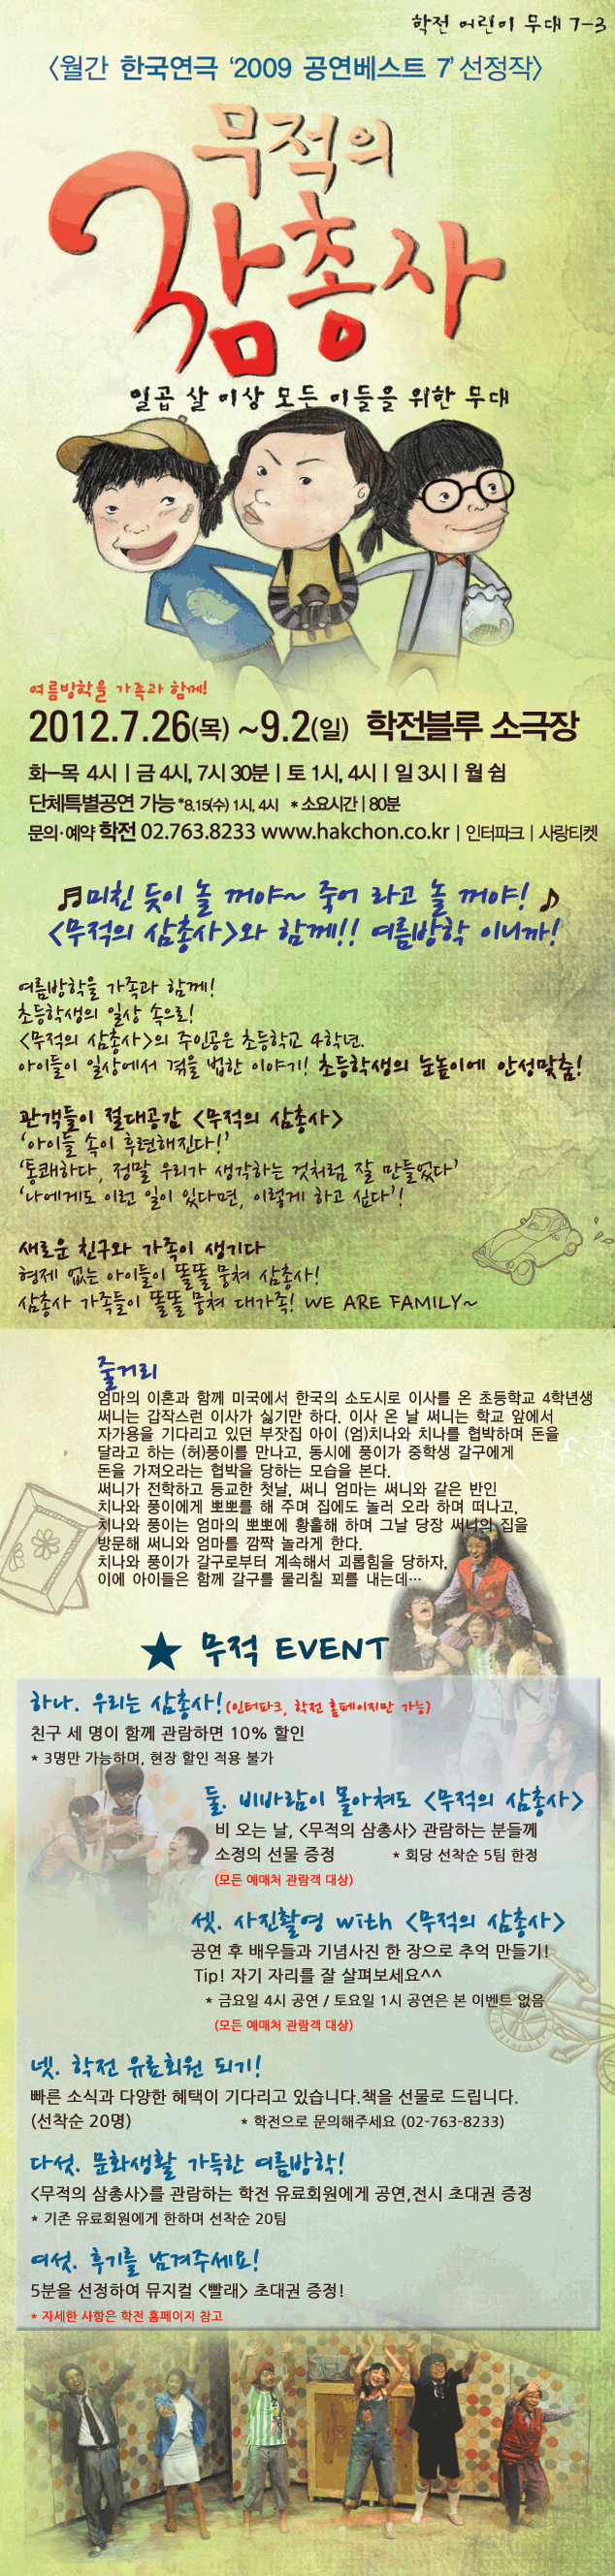 학전 어린이 무대 7-3
<월간 한국연극 ‘2009 공연베스트 7’ 선정작>
무적의
삼총사
일곱 살 이상 모든 이들을 위한 무대
여름방학을 가족과 함께!
2012.7.26(목) ~9.2(일) 학전블루 소극장
화-목 4시 | 금 4시, 7시 30분 | 토 1시, 4시 | 일 3시 | 월 쉼
단체특별공연 가능 *8.15(수) 1시, 4시 *소요시간 | 80분
문의·예약 학전 02.763.8233 www.hakchon.co.kr | 인터파크 | 사랑티켓
미친 듯이 놀 꺼야~ 죽어 라고 놀 꺼야!
<무적의 삼총사>와 함께!! 여름방학 이니까!
여름방학을 가족과 함께!
초등학생의 일상 속으로!
<무적의 삼총사>의 주인공은 초등학교 4학년.
아이들이 일상에서 겪을 법한 이야기! 초등학생의 눈높이에 안성맞춤!
관객들이 절대공감 <무적의 삼총사>
‘아이들 속이 후련해진다!’
‘통쾌하다, 정말 우리가 생각하는 것처럼 잘 만들었다’
‘나에게도 이런 일이 있다면, 이렇게 하고 싶다’!
새로운 친구와 가족이 생기다
형제 없는 아이들이 똘똘 뭉쳐 삼총사!
삼총사 가족들이 똘똘 뭉쳐 대가족! WE ARE FAMILY~
줄거리
엄마의 이혼과 함께 미국에서 한국의 소도시로 이사를 온 초등학교 4학년생
써니는 갑작스런 이사가 싫기만 하다. 이사 온 날 써니는 학교 앞에서
자가용을 기다리고 있던 부잣집 아이 (엄)치나와 치나를 협박하며 돈을
달라고 하는 (허)풍이를 만나고, 동시에 풍이가 중학생 갈구에게
돈을 가져오라는 협박을 당하는 모습을 본다.
써니가 전학하고 등교한 첫날, 써니 엄마는 써니와 같은 반인
치나와 풍이에게 뽀뽀를 해 주며 집에도 놀러 오라 하며 떠나고,
치나와 풍이는 엄마의 뽀뽀에 황홀해 하며 그날 당장 써니의 집을
방문해 써니와 엄마를 깜짝 놀라게 한다.
치나와 풍이가 갈구로부터 계속해서 괴롭힘을 당하자,
이에 아이들은 함께 갈구를 물리칠 꾀를 내는데…
★ 무적 EVENT
하나. 우리는 삼총사! (인터파크, 학전 홈페이지만 가능)
친구 세 명이 함께 관람하면 10% 할인
* 3명만 가능하며, 현장 할인 적용 불가
둘. 비바람이 몰아쳐도 <무적의 삼총사>
비 오는 날, <무적의 삼총사> 관람하는 분들께
소정의 선물 증정 * 회당 선착순 5팀 한정
(모든 예매처 관람객 대상)
셋. 사진촬영 with <무적의 삼총사>
공연 후 배우들과 기념사진 한 장으로 추억 만들기!
Tip! 자기 자리를 잘 살펴보세요^^
* 금요일 4시 공연 / 토요일 1시 공연은 본 이벤트 없음
(모든 예매처 관람객 대상)
넷. 학전 유료회원 되기!
빠른 소식과 다양한 혜택이 기다리고 있습니다.책을 선물로 드립니다.
(선착순 20명) * 학전으로 문의해주세요 (02-763-8233)
다섯. 문화생활 가득한 여름방학!
<무적의 삼총사>를 관람하는 학전 유료회원에게 공연,전시 초대권 증정
* 기존 유료회원에게 한하며 선착순 20팀
여섯. 후기를 남겨주세요!
5분을 선정하여 뮤지컬 <빨래> 초대권 증정!
* 자세한 사항은 학전 홈페이지 참고